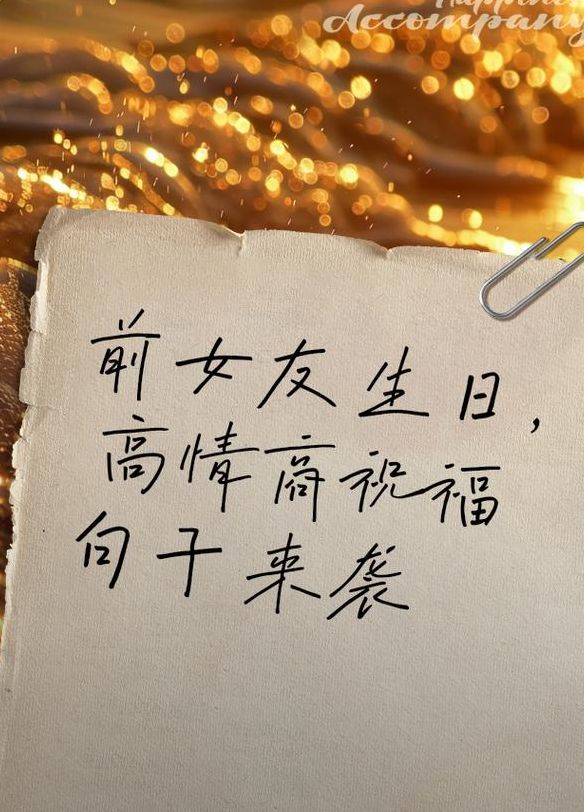 Happiness
Accompany
前女友生日，
高情商祝福
句子来袭